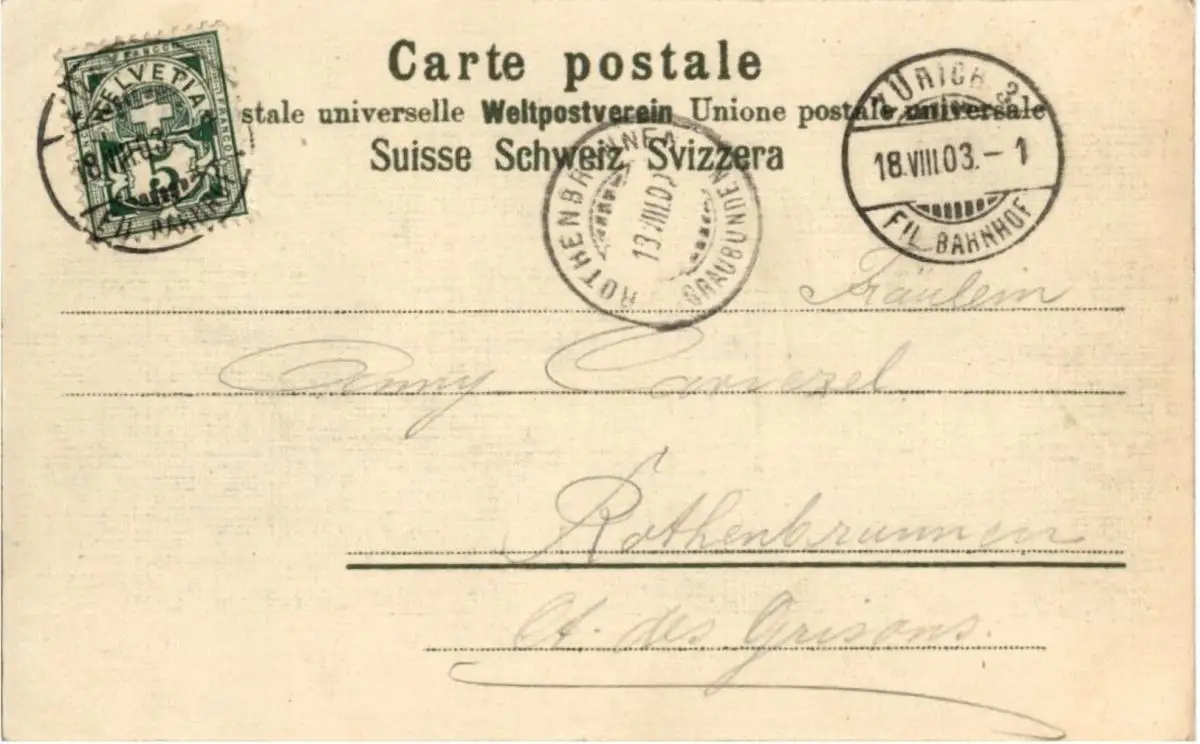 Carte postale
stale universelle Weltpostverein Unione postale universale
Suisse Schweiz Svizzera
FRANCO
HELVETIA
FRANCO
5
18.VIII.03.
ZÜRICH 3
18.VIII.03.-1
FIL. BAHNHOF
ROTHENBRUNNEN
19.VIII.03
GRAUBÜNDEN
Fräulein
Anny
Rothenbrunnen
Ct. des Grisons.